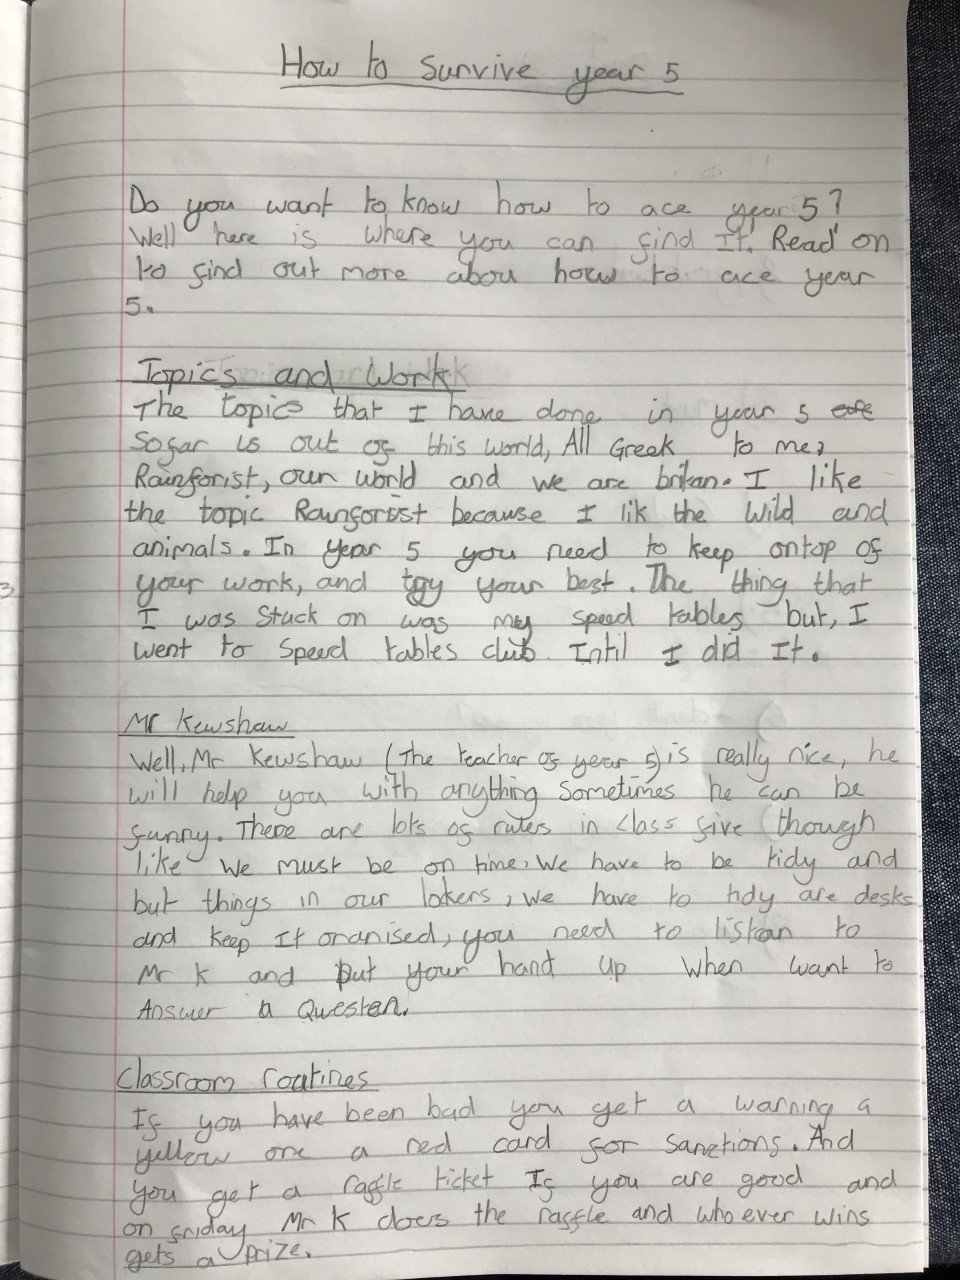 How to survive year 5
Do you want to know how to ace year 5?
Well here is where you can find It. Read on
to find out more abou how to ace year
5.
Topics and Work
The topics that I have done in year 5
Sofar is out of this world, All Greek to me,
Rainforist, our world and we are britan. I like
the topic Rainforist because I lik the wild and
animals. In year 5 you need to keep ontop of
your work, and try your best. The thing that
I was stuck on was my speed tables but, I
went to speed tables club Intil I did It.
Mr Kewshaw
Well, Mr Kewshaw (The teacher of year 5) is really nice, he
will help you with anything Sometimes he can be
funny. There are lots of rules in class five though
like we must be on time, We have to be tidy and
but things in our lokers, we have to tidy are desks
and keep It oranised, you need to listan to
Mr K and put your hand up when want to
Answer a Questen.
Classroom routines
If you have been bad you get a warning a
yellow one a red card for sanctions. And
you get a raffle ticket If you are good and
on friday Mr K does the raffle and who ever wins
gets a prize.